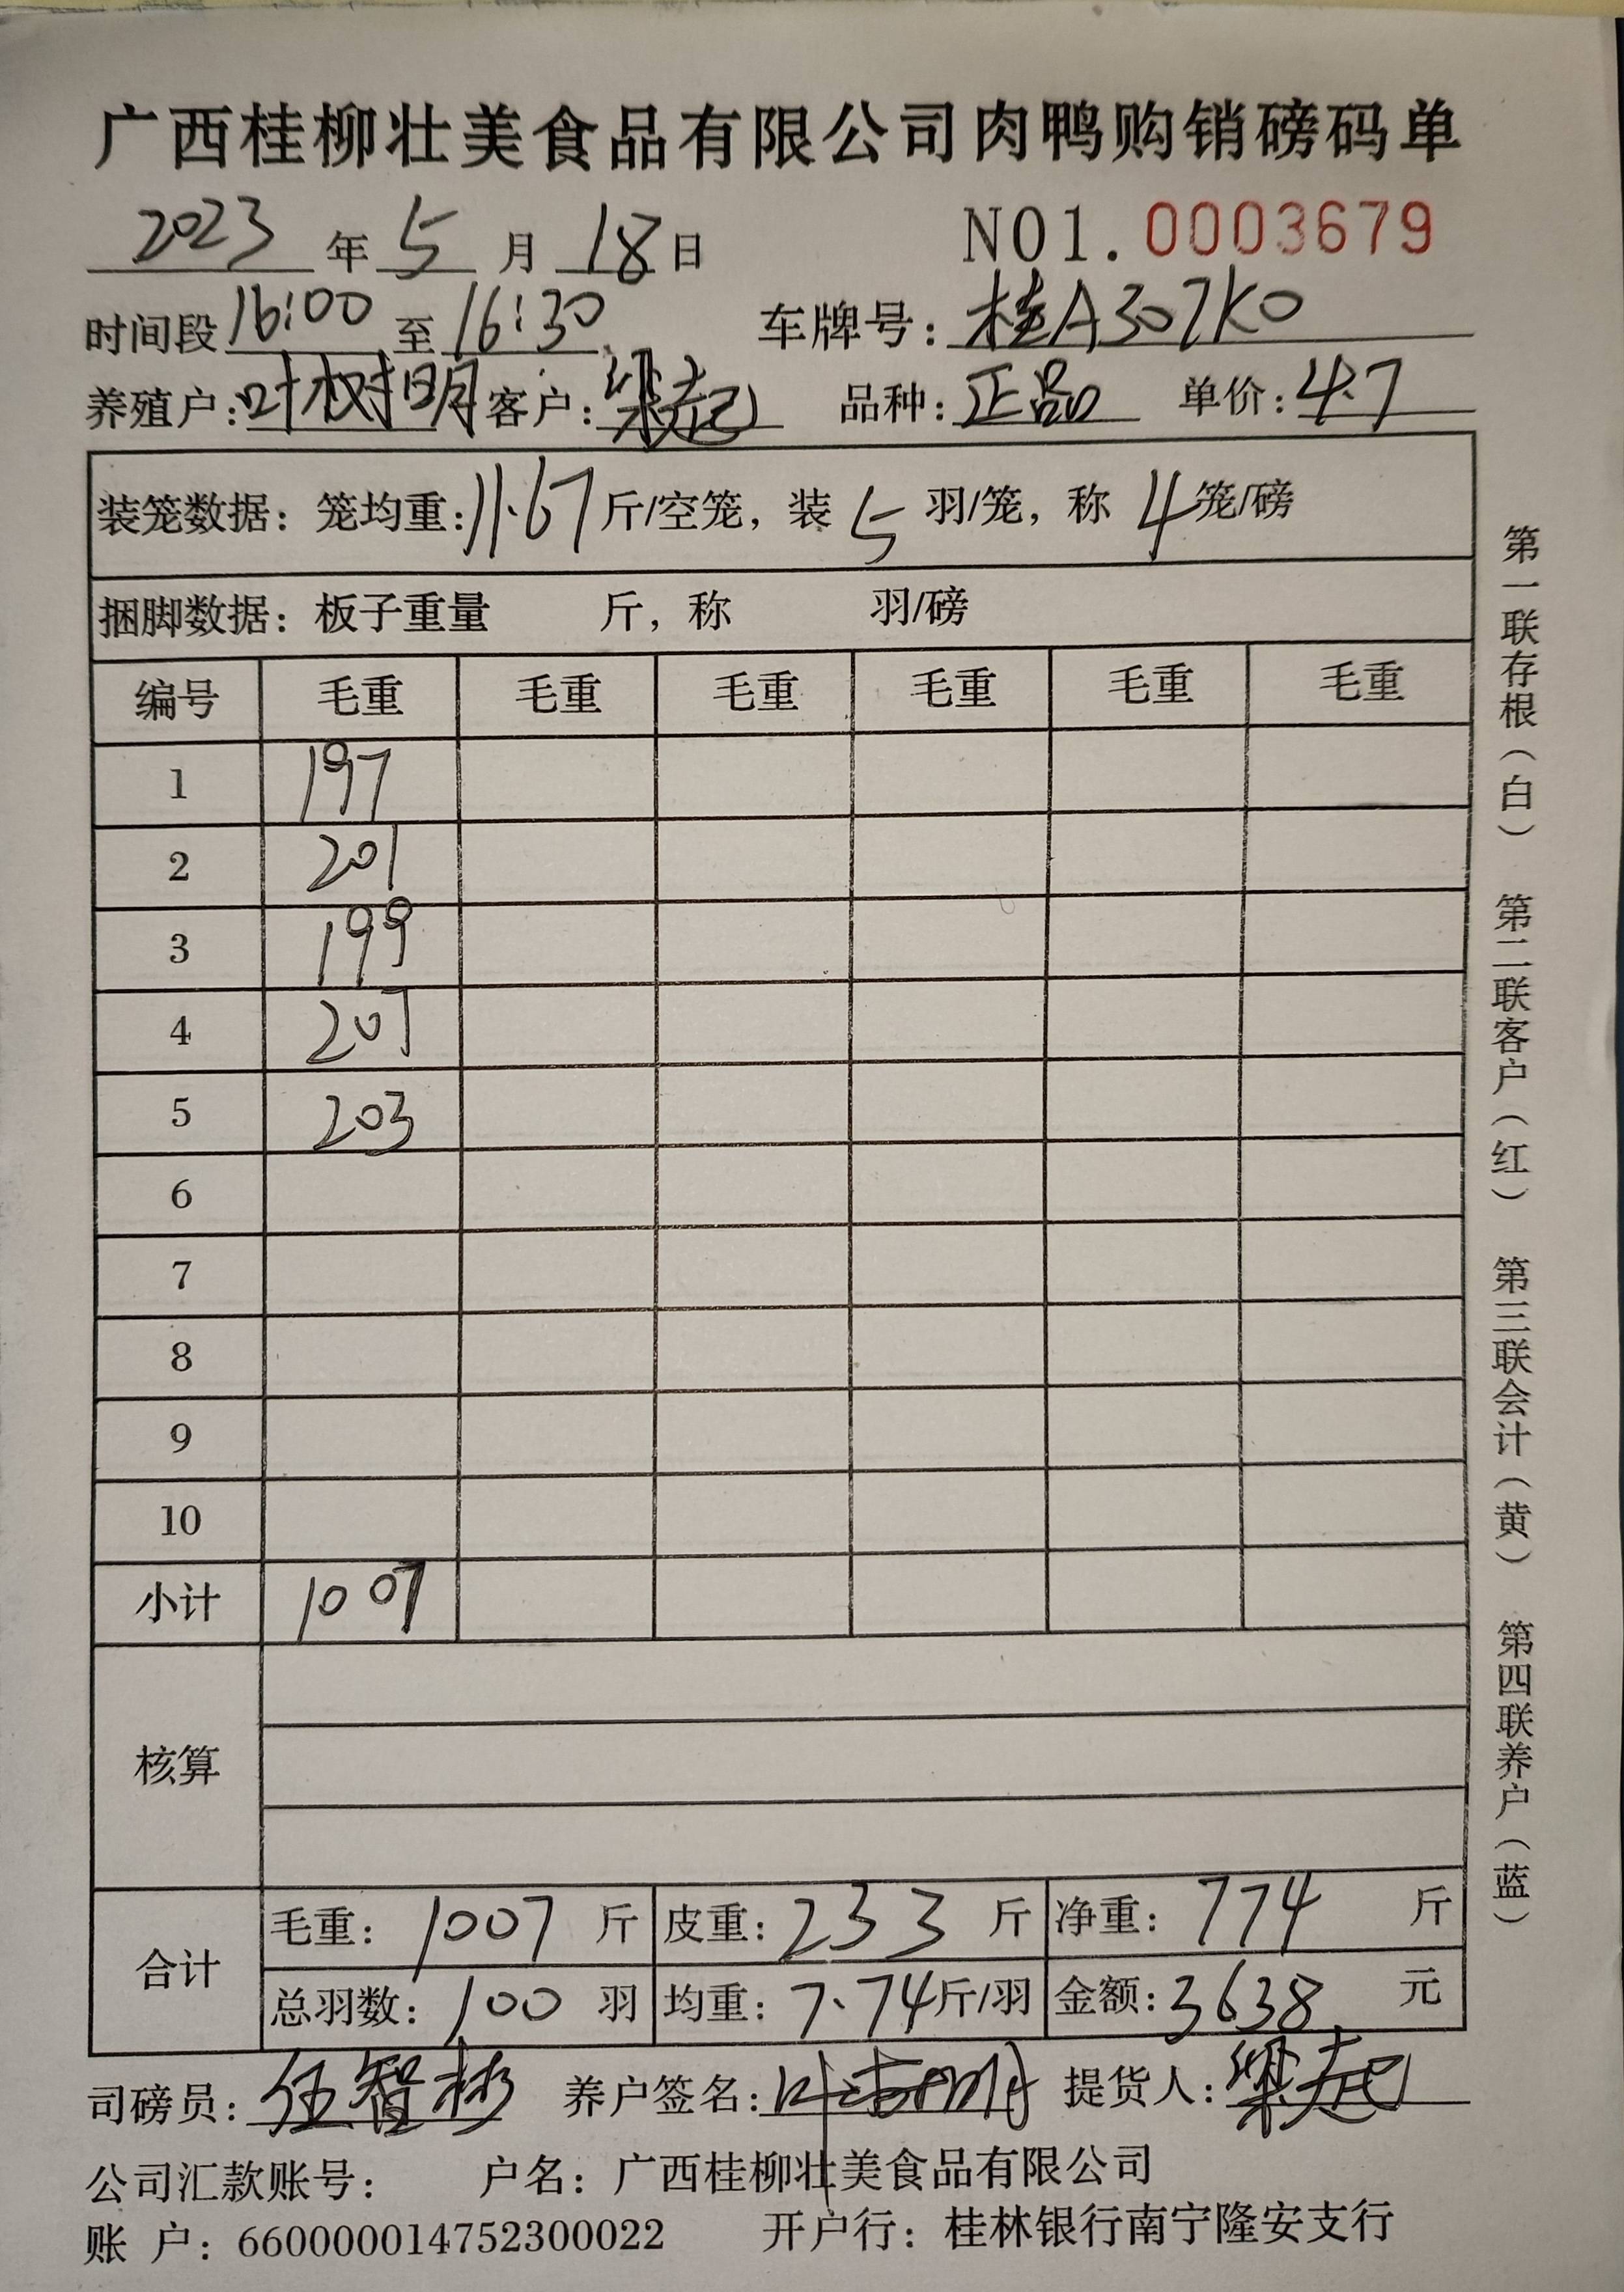 广西桂柳壮美食品有限公司肉鸭购销磅码单
2023 年 5 月 18 日 NO1. 0003679
时间段 16:00 至 16:30 车牌号: 桂A307K0
养殖户: 叶树明 客户: 梁起 品种: 正品 单价: 4.7
装笼数据: 笼均重: 11.67 斤/空笼, 装 5 羽/笼, 称 4 笼/磅
捆脚数据: 板子重量 斤, 称 羽/磅
编号 毛重 毛重 毛重 毛重 毛重 毛重
1 197
2 201
3 199
4 207
5 203
6
7
8
9
10
小计 1007
核算
合计
毛重: 1007 斤 皮重: 233 斤 净重: 774 斤
总羽数: 100 羽 均重: 7.74 斤/羽 金额: 3638 元
司磅员: 伍智彬 养户签名: 叶树明 提货人: 梁起
公司汇款账号: 户名: 广西桂柳壮美食品有限公司
账 户: 660000014752300022 开户行: 桂林银行南宁隆安支行
第一联存根(白) 第二联客户(红) 第三联会计(黄) 第四联养户(蓝)